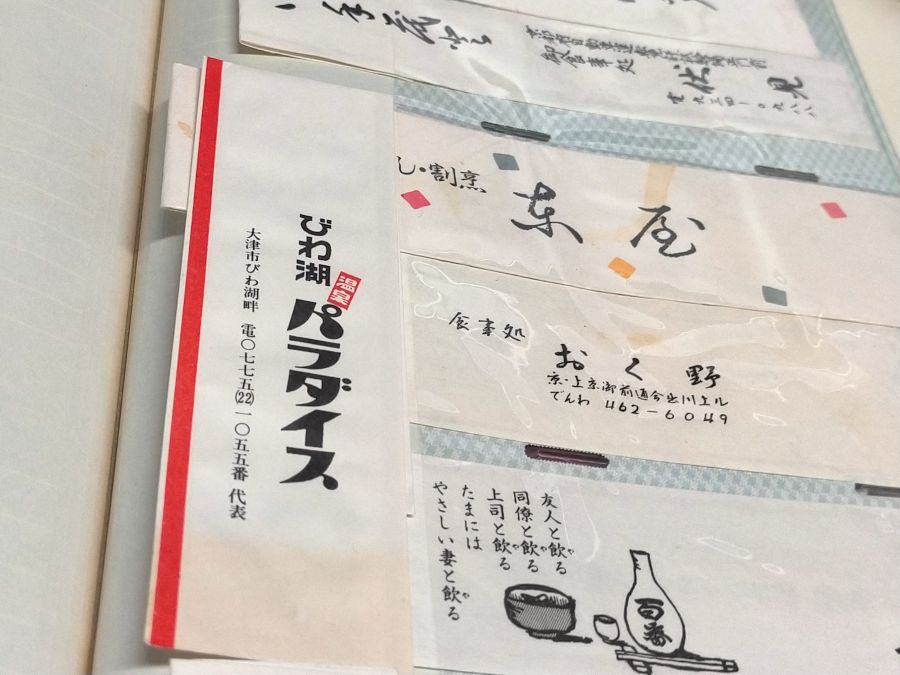 びわ湖
温泉
パラダイス
大津市びわ湖畔 電〇七七五(22)一〇五五番 代表
御食事処
伏見
し・割烹
東屋
食事処
おく野
京・上京御前通今出川上ル
でんわ 462-6049
友人と飲る
や
同僚と飲る
や
上司と飲る
や
たまには
やさしい妻と飲る
や
百番